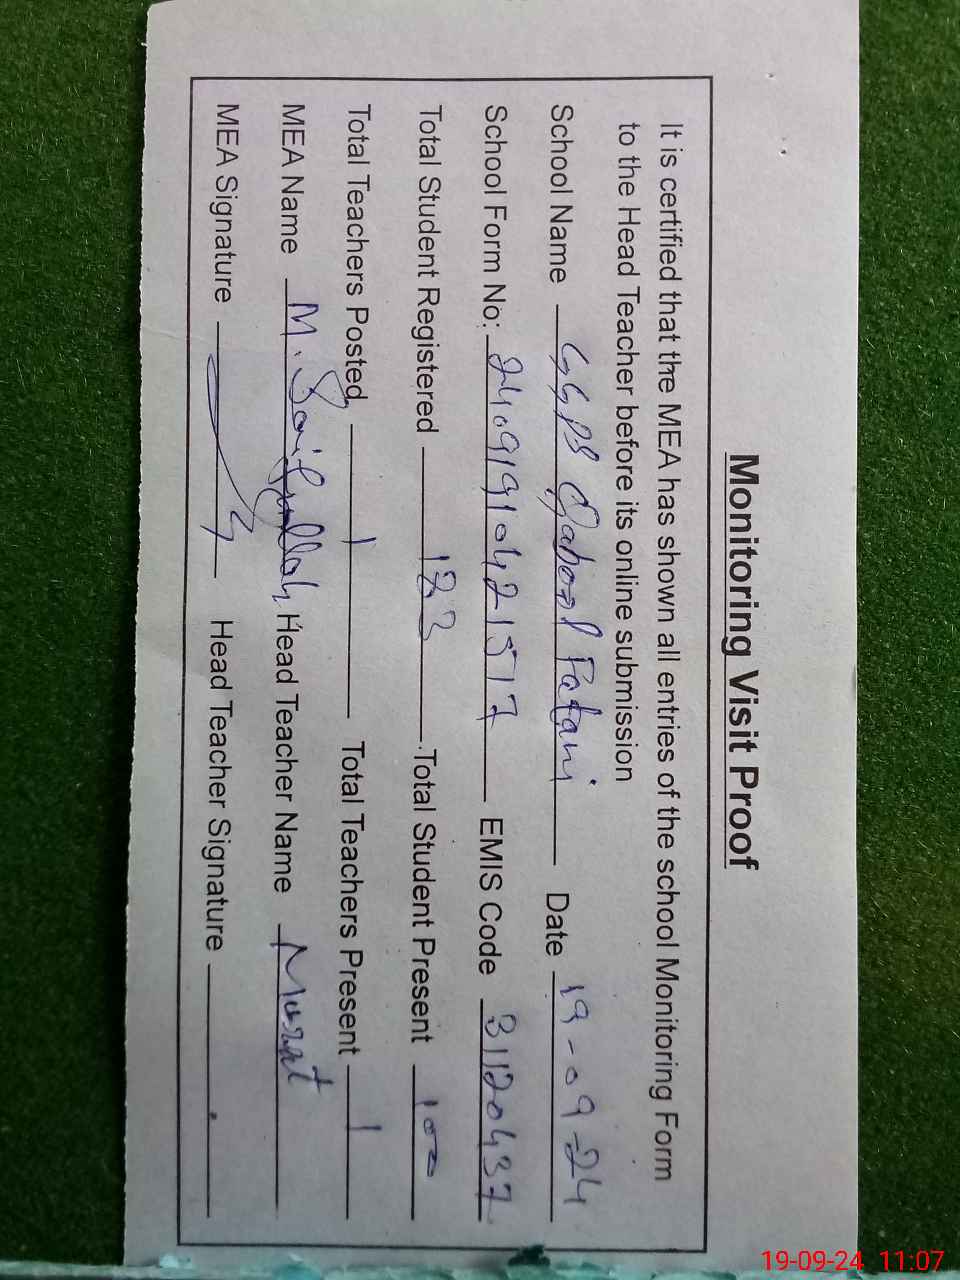 Monitoring Visit Proof
It is certified that the MEA has shown all entries of the school Monitoring Form
to the Head Teacher before its online submission
School Name GGPS Qabool Patani Date 19-09-24
School Form No: 24091910421517 EMIS Code 31120437
Total Student Registered 183 Total Student Present 100
Total Teachers Posted 1 Total Teachers Present 1
MEA Name M. Saifullah Head Teacher Name
MEA Signature Head Teacher Signature
19-09-24 11:07